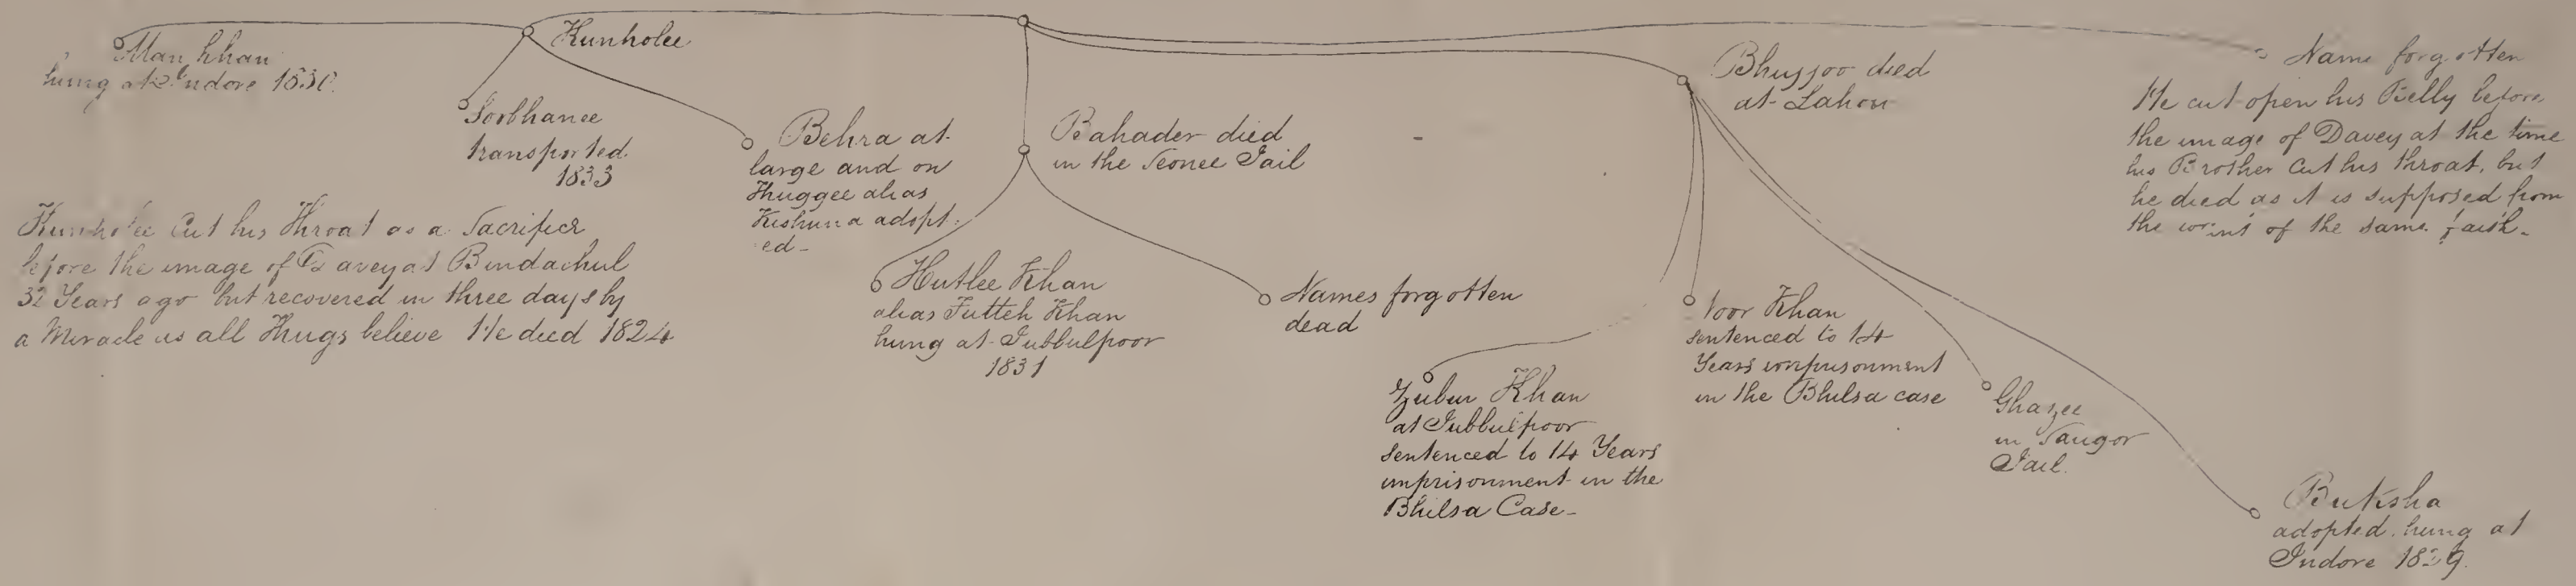 Man Khan
hung at Indore 1830.
Kunholee
Sorbhanee
transported
1833
Behra at
large and on
Thuggee alias
Kishuna adopt-
ed-
Kunholee Cut his Throat as a Sacrifice
before the image of Davey at Bindachul
32 Years ago but recovered in three days by
a Miracle as all Thugs believe He died 1824
Bahader died
in the Seonee Jail
Hutlee Khan
alias Futteh Khan
hung at Jubbulpoor
1831
Names forgotten
dead
Bhujjoo died
at Lahou
Zubur Khan
at Jubbulpoor
sentenced to 14 Years
imprisonment in the
Bhilsa Case-
Noor Khan
sentenced to 14
Years imprisonment
in the Bhilsa case
Ghazee
in Saugor
Jail.
Buksha
adopted. hung at
Indore
Name forgotten
He cut open his Belly before
the image of Davey at the time
his Brother Cut his throat, but
he died as it is supposed from
the want of the same faith-